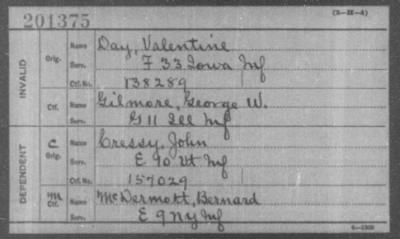 201375
(3-IX-4)
INVALID
Orig. Name Day, Valentine
Serv. F 33 Iowa Inf
Ctf. No. 138289
Ctf. Name Gilmore, George W.
Serv. G 11 Ill Inf
DEPENDENT
C Orig. Name Cressy, John
Serv. E 90 Ut Inf
Ctf. No. 157029
M Ctf. Name McDermott, Bernard
Serv. E 9 NY Inf